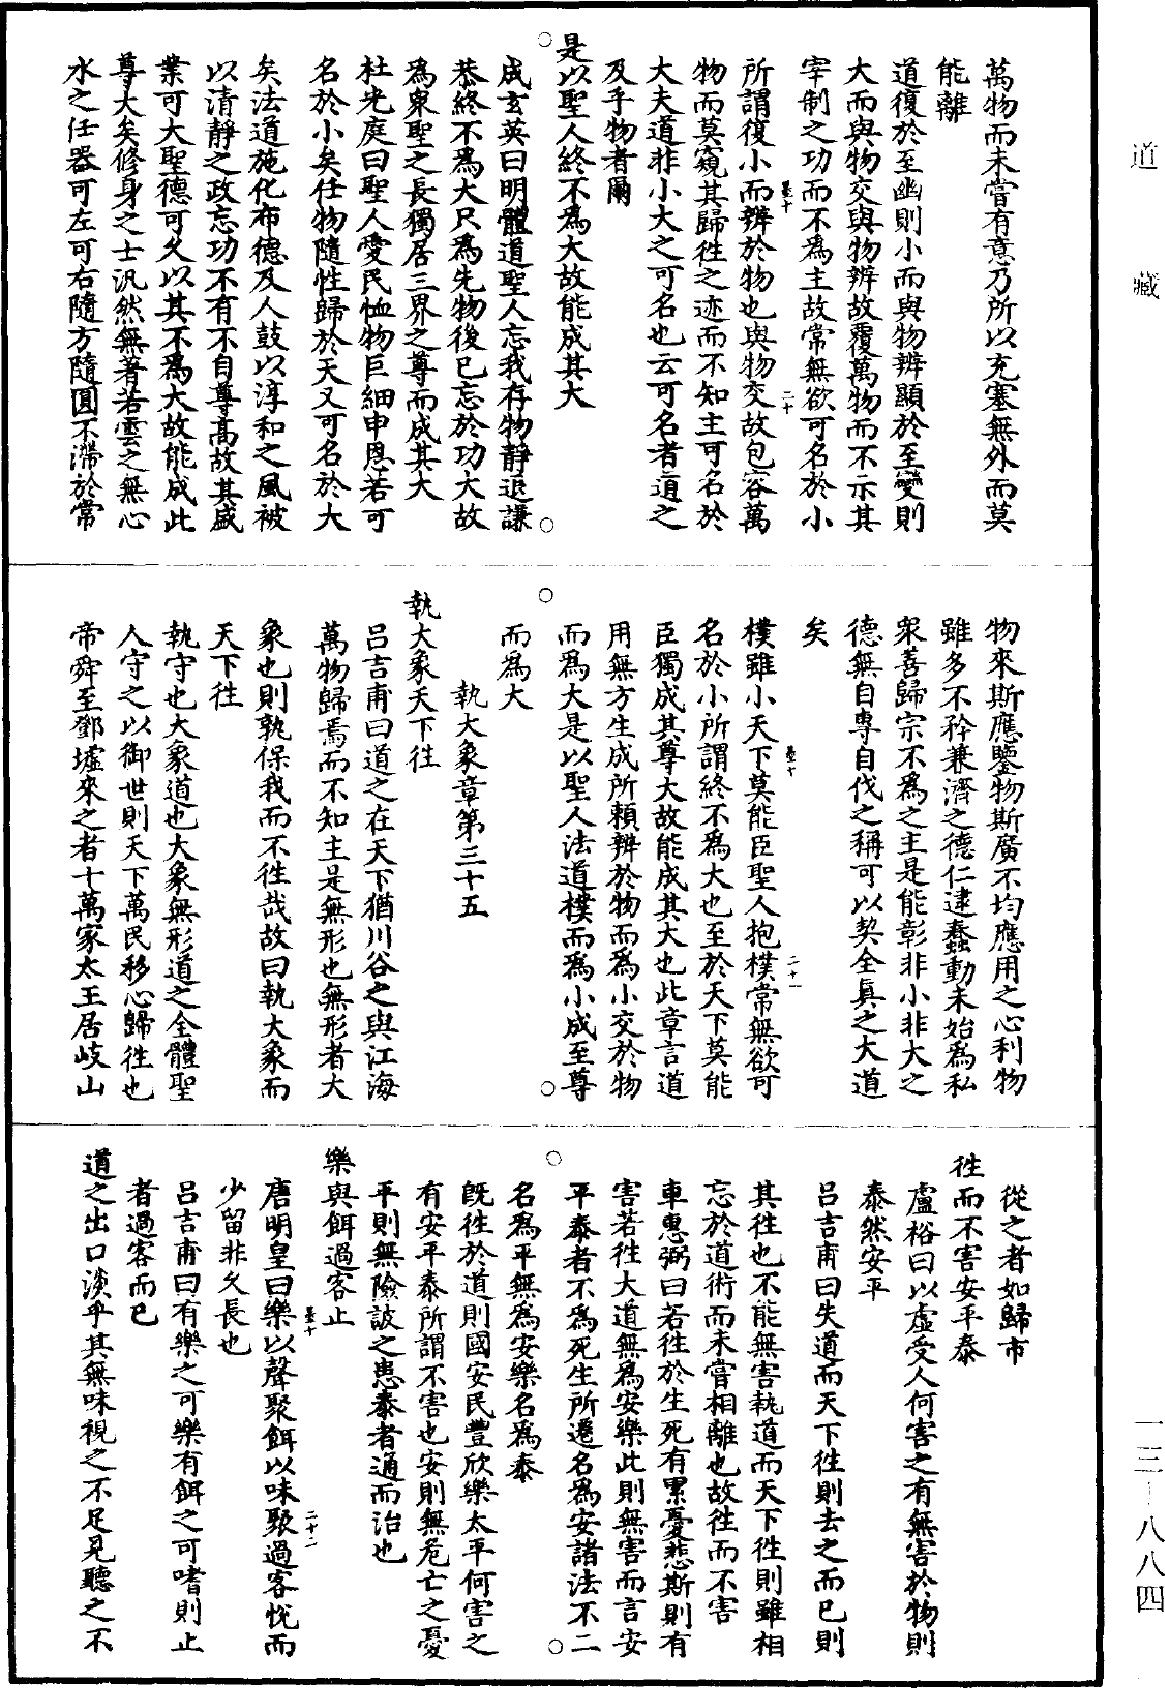 道藏
萬物而未嘗有意乃所以充塞無外而莫
能離
道復於至幽則小而與物辨顯於至變則
大而與物交與物辨故覆萬物而不示其
宰制之功而不為主故常無欲可名於小
所謂復小而辨於物也與物交故包容萬
物而莫窺其歸徃之迹而不知主可名於
大夫道非小大之可名也云可名者道之
及乎物者爾
是以聖人終不為大故能成其大
成玄英曰明體道聖人忘我存物靜退謙
恭終不為大只為先物後已忘於功大故
為衆聖之長獨居三界之尊而成其大
杜光庭曰聖人愛民恤物巨細申恩若可
名於小矣任物隨性歸於天又可名於大
矣法道施化布德及人鼓以淳和之風被
以清靜之政忘功不有不自尊高故其盛
業可大聖德可久以其不為大故能成此
尊大矣修身之士汎然無著若雲之無心
水之任器可左可右隨方隨圓不滯於常
物來斯應鑒物斯廣不均應用之心利物
雖多不矜兼濟之德仁逮蠢動未始為私
衆善歸宗不為之主是能彰非小非大之
德無自專自伐之稱可以契全真之大道
矣
樸雖小天下莫能臣聖人抱樸常無欲可
名於小所謂終不為大也至於天下莫能
臣獨成其尊大故能成其大也此章言道
用無方生成所賴辨於物而為小交於物
而為大是以聖人法道樸而為小成至尊
而為大
執大象章第三十五
執大象天下徃
呂吉甫曰道之在天下猶川谷之與江海
萬物歸焉而不知主是無形也無形者大
象也則孰保我而不徃哉故曰執大象而
天下徃
執守也大象道也大象無形道之全體聖
人守之以御世則天下萬民移心歸徃也
帝舜至鄧墟來之者十萬家太王居岐山
從之者如歸市
徃而不害安平泰
盧裕曰以虛受人何害之有無害於物則
泰然安平
呂吉甫曰失道而天下徃則去之而已則
其徃也不能無害執道而天下徃則雖相
忘於道術而未嘗相離也故徃而不害
車惠弼曰若徃於生死有累憂悲斯則有
害若徃大道無為安樂此則無害而言安
平泰者不為死生所遷名為安諸法不二
名為平無為安樂名為泰
既徃於道則國安民豐欣樂太平何害之
有安平泰所謂不害也安則無危亡之憂
平則無險詖之患泰者通而治也
樂與餌過客止
唐明皇曰樂以聲聚餌以味聚過客悅而
少留非久長也
呂吉甫曰有樂之可樂有餌之可嗜則止
者過客而已
道之出口淡乎其無味視之不足見聽之不
一三—八八四